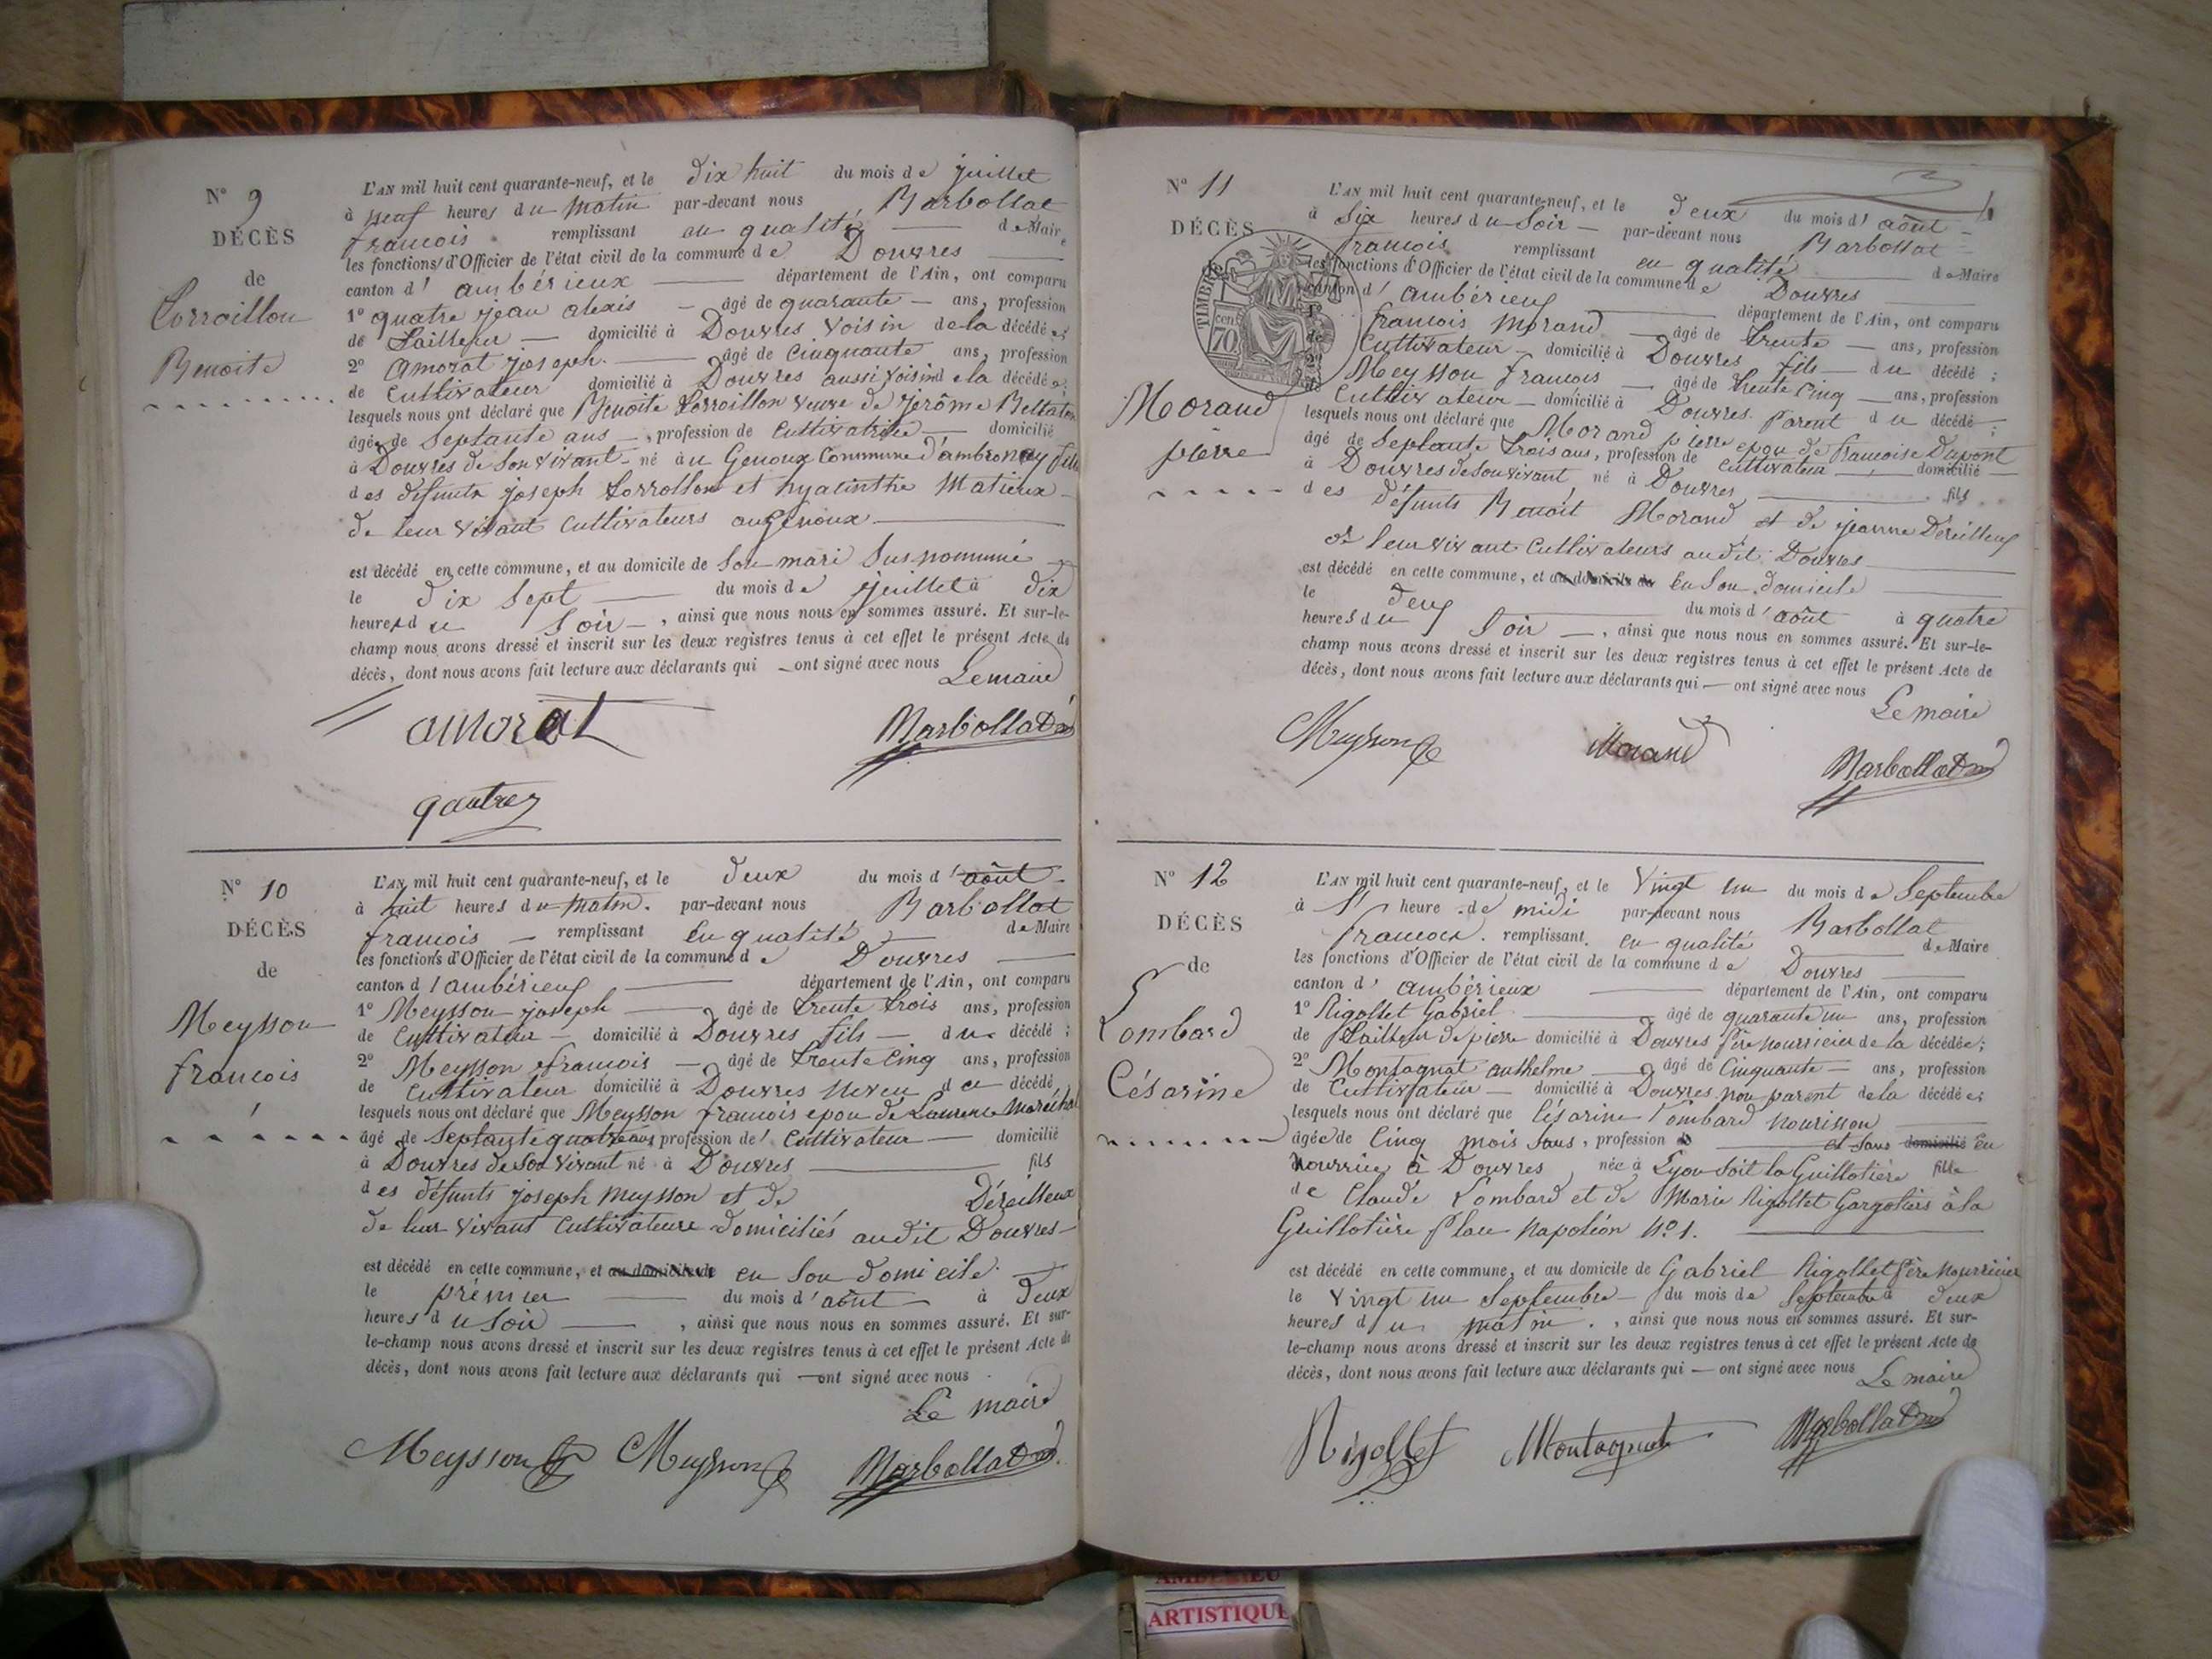 N° 9
DÉCÈS
de
Corroillon
Benoite
L'AN mil huit cent quarante-neuf, et le dix huit du mois de juillet
à neuf heures du matin par-devant nous Barbollat
francois remplissant en qualité de Maire
les fonctions d'Officier de l'état civil de la commune de Douvres
canton d'ambérieux département de l'Ain, ont comparu
1° quatre jean alexis âgé de quarante ans, profession
de tailleur domicilié à Douvres voisin de la décédée;
2° Amorat joseph âgé de Cinquante ans, profession
de Cultivateur domicilié à Douvres aussi voisin de la décédée;
lesquels nous ont déclaré que Benoite Corroillon veuve de jerôme
âgée de Septante ans, profession de Cultivatrice domicilié
à Douvres de son vivant né au Genoux Commune d'ambronay fille
des défunts joseph Corrollon et hyacinthe Matieux
de leur vivant Cultivateurs au Genoux
est décédé en cette commune, et au domicile de Son mari Susnommé
le dix Sept du mois de juillet à dix
heures du Soir, ainsi que nous nous en sommes assuré. Et sur-le-
champ nous avons dressé et inscrit sur les deux registres tenus à cet effet le présent Acte de
décès, dont nous avons fait lecture aux déclarants qui ont signé avec nous
Le maire
amorat Barbollat
N° 10
DÉCÈS
de
Meysson
francois
L'AN mil huit cent quarante-neuf, et le deux du mois d'août
à huit heures du matin. par-devant nous Barbollat
francois remplissant En qualité de Maire
les fonctions d'Officier de l'état civil de la commune de Douvres
canton d'ambérieux département de l'Ain, ont comparu
1° Meysson joseph âgé de trente trois ans, profession
de Cultivateur domicilié à Douvres fils du décédé;
2° Meysson francois âgé de trente Cinq ans, profession
de Cultivateur domicilié à Douvres neveu du décédé
lesquels nous ont déclaré que Meysson francois epou de Laurence Maréchal
âgé de Septante quatre ans profession de Cultivateur domicilié
à Douvres de Son vivant né à Douvres fils
des défunts joseph meysson et de Déreilleux
de leur vivant Cultivateurs domiciliés audit Douvres
est décédé en cette commune, et au domicile de en Son domicile
le prémier du mois d'août à deux
heures du Soir, ainsi que nous nous en sommes assuré. Et sur-
le-champ nous avons dressé et inscrit sur les deux registres tenus à cet effet le présent Acte de
décès, dont nous avons fait lecture aux déclarants qui ont signé avec nous
Le maire
Meysson Meysson Barbollat
N° 11
DÉCÈS
TIMBRE
70
Morand
pierre
L'AN mil huit cent quarante-neuf, et le deux du mois d'août
à Six heures du Soir par-devant nous Barbollat
francois remplissant en qualité de Maire
les fonctions d'Officier de l'état civil de la commune de Douvres
canton d'ambérieux département de l'Ain, ont comparu
1° francois Morand âgé de trente ans, profession
de Cultivateur domicilié à Douvres fils du décédé;
2° Meysson francois âgé de trente Cinq ans, profession
de Cultivateur domicilié à Douvres. Parent du décédé;
lesquels nous ont déclaré que Morand pierre epou de francoise Dupont
âgé de Septante trois ans, profession de Cultivateur domicilié
à Douvres de Son vivant né à Douvres fils
des défunts Benoit Morand et de jeanne Déreilleux
de leur vivant Cultivateurs audit Douvres
est décédé en cette commune, et au domicile de En Son domicile
le deux du mois d'août à quatre
heures du Soir, ainsi que nous nous en sommes assuré. Et sur-le-
champ nous avons dressé et inscrit sur les deux registres tenus à cet effet le présent Acte de
décès, dont nous avons fait lecture aux déclarants qui ont signé avec nous
Le maire
Meysson Morand Barbollat
N° 12
DÉCÈS
de
Lombard
Césarine
L'AN mil huit cent quarante-neuf, et le vingt un du mois de Septembre
à heure de midi par-devant nous Barbollat
francois. remplissant en qualité de Maire
les fonctions d'Officier de l'état civil de la commune de Douvres
canton d'ambérieux département de l'Ain, ont comparu
1° Rigollet Gabriel âgé de quarante un ans, profession
de tailleur de pierre domicilié à Douvres Père nourricier de la décédée;
2° Montagnat anthelme âgé de Cinquante ans, profession
de Cultivateur domicilié à Douvres non parent de la décédée;
lesquels nous ont déclaré que Césarine Lombard nourisson
âgée de Cinq mois Sans, profession et Sans domicilié En
nourrice à Douvres née à Lyon Soit la Guillotière fille
de Claude Lombard et de Marie Rigollet Gargotiers à la
Guillotière Place Napoléon N° 1.
est décédé en cette commune, et au domicile de Gabriel Rigollet Père nourricier
le vingt un Septembre du mois de Septembre à deux
heures du matin, ainsi que nous nous en sommes assuré. Et sur-
le-champ nous avons dressé et inscrit sur les deux registres tenus à cet effet le présent Acte de
décès, dont nous avons fait lecture aux déclarants qui ont signé avec nous
Le maire
Rigollet Montagnat Barbollat
ARTISTIQUE